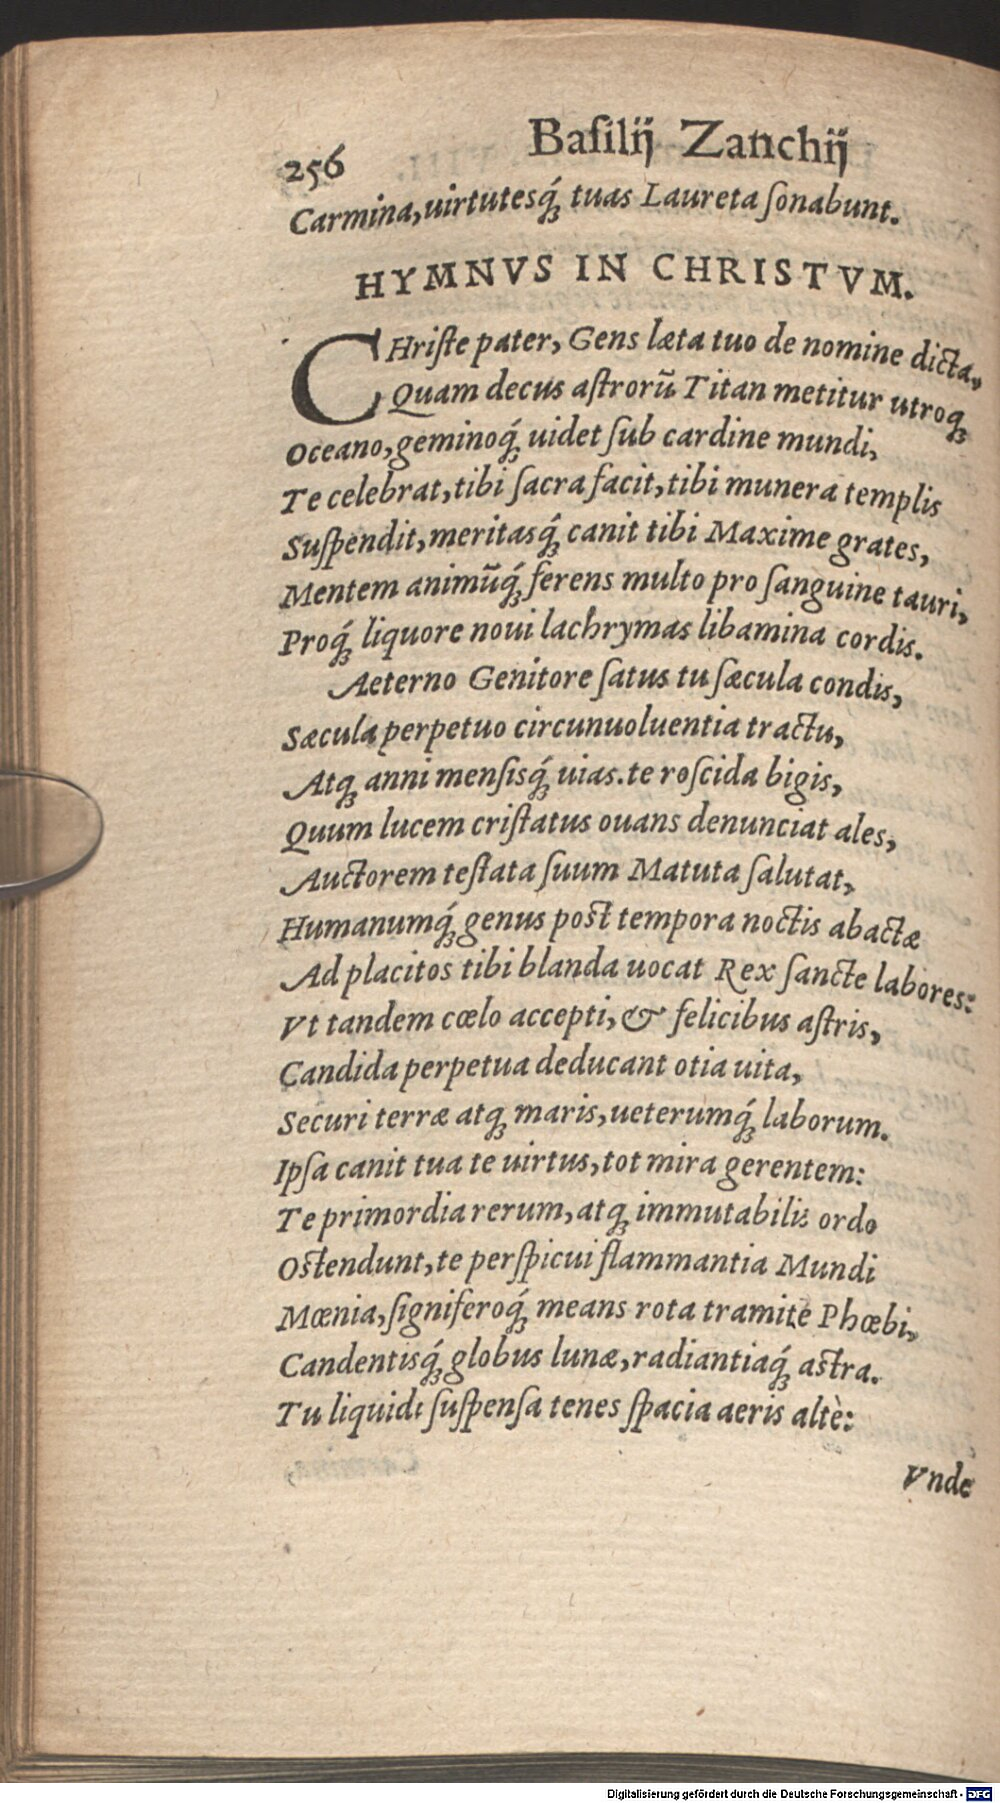 256 Baſilij Zanchij
Carmina, uirtutesq́; tuas Laureta ſonabunt.
HYMNVS IN CHRISTVM.
CHriſte pater, Gens læta tuo de nomine dicta,
Quam decus aſtrorũ Titan metitur utroq;
Oceano, geminoq́; uidet ſub cardine mundi,
Te celebrat, tibi ſacra facit, tibi munera templis
Suſpendit, meritasq́; canit tibi Maxime grates,
Mentem animũq́; ferens multo pro ſanguine tauri,
Proq́; liquore noui lachrymas libamina cordis.
Aeterno Genitore ſatus tu ſæcula condis,
Sæcula perpetuo circunuoluentia tractu,
Atq; anni menſisq́; uias. te roſcida bigis,
Quum lucem criſtatus ouans denunciat ales,
Auctorem teſtata ſuum Matuta ſalutat,
Humanumq́; genus poſt tempora noctis abactæ
Ad placitos tibi blanda uocat Rex ſancte labores:
Vt tandem cœlo accepti, & felicibus aſtris,
Candida perpetua deducant otia uita,
Securi terræ atq; maris, ueterumq́; laborum.
Ipſa canit tua te uirtus, tot mira gerentem:
Te primordia rerum, atq; immutabilis ordo
Oſtendunt, te perſpicui flammantia Mundi
Mœnia, ſigniferoq́; means rota tramite Phœbi,
Candentisq́; globus lunæ, radiantiaq́; aſtra.
Tu liquidi ſuſpenſa tenes ſpacia aeris altè:
Vnde
Digitalisierung gefördert durch die Deutsche Forschungsgemeinschaft - DFG